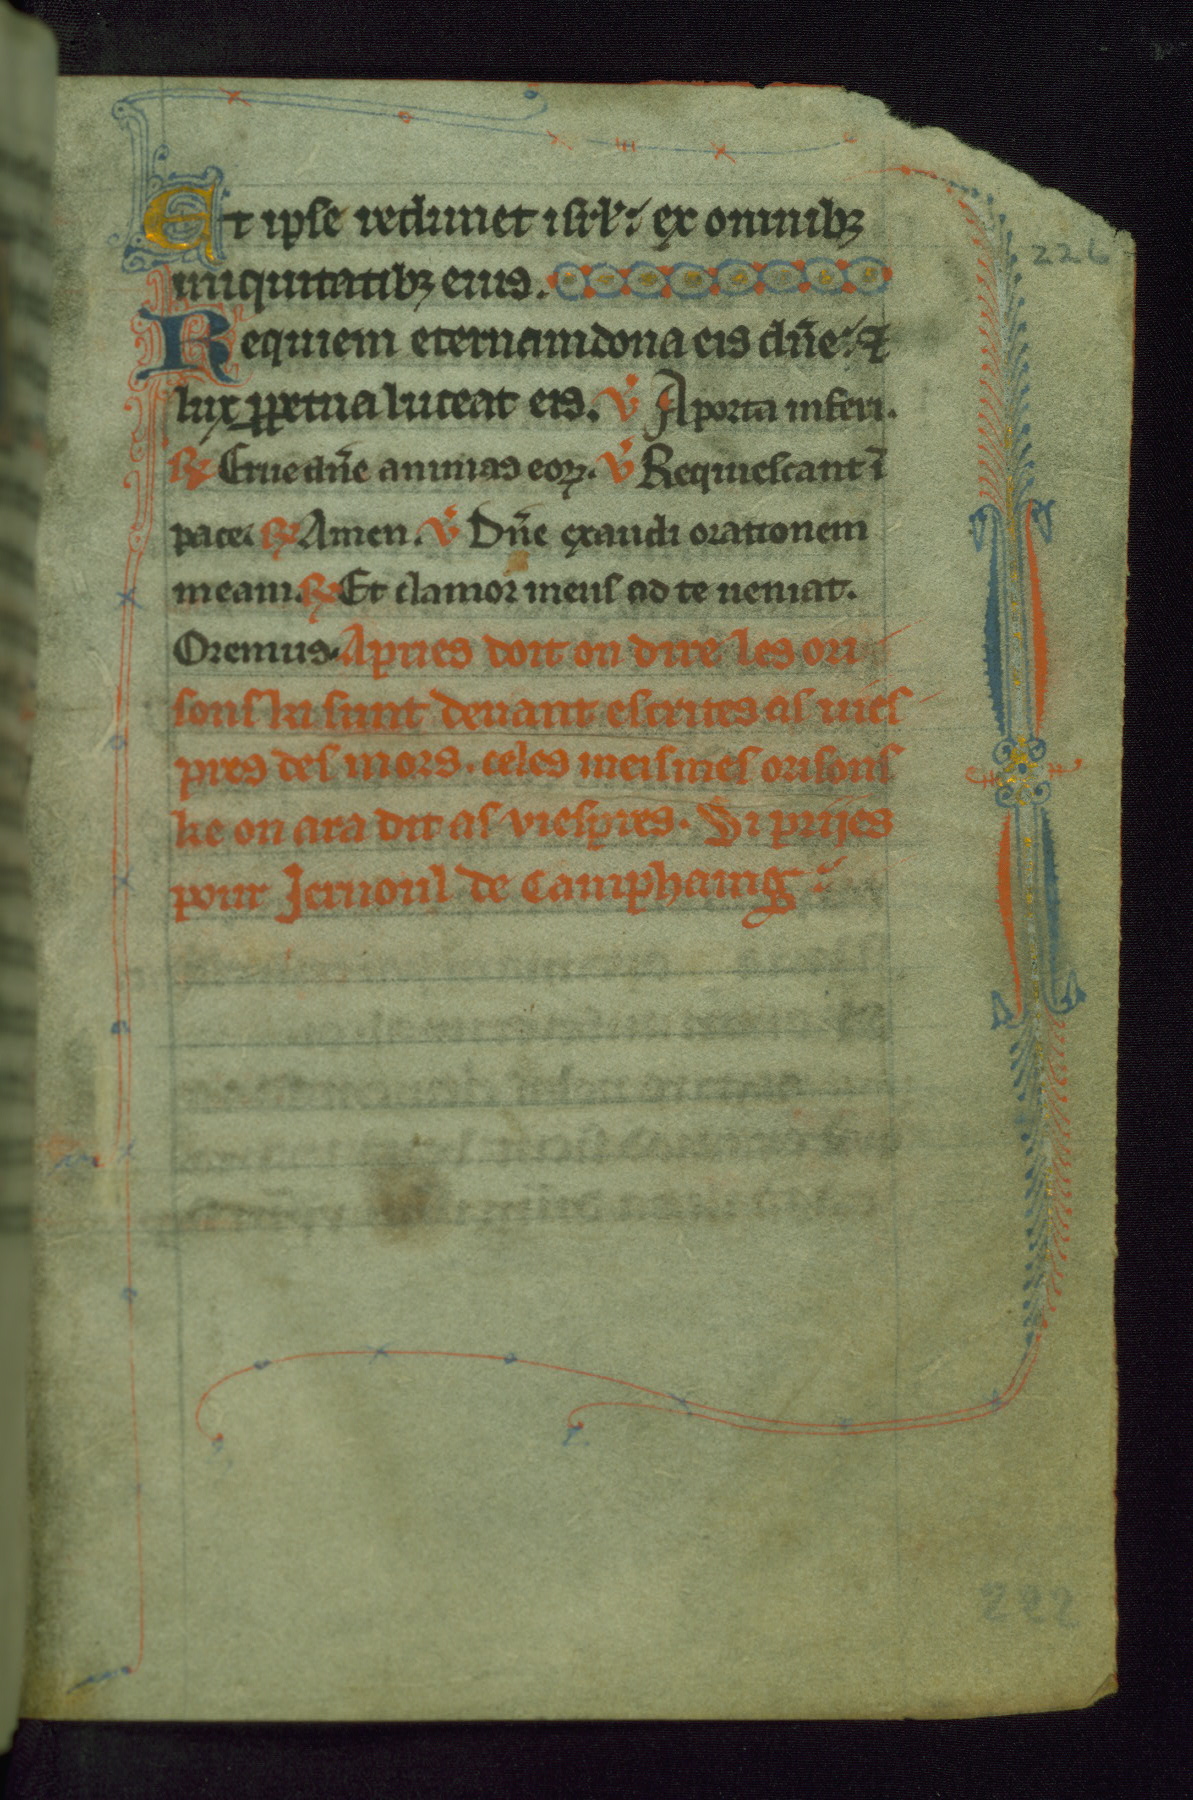 Et ipse redimet isrl'. ex omnibꝫ
iniquitatibꝫ eius.
Requiem eternam dona eis dn̄e. ⁊
lux ꝑpetua luceat eis. V̾ A porta inferi.
R̾ Erue dn̄e animas eoꝝ. V̾ Requiescant ī
pace. R̾ Amen. V̾ Dn̄e exaudi orationem
meam. R̾ Et clamor meus ad te ueniat.
Oremus. Apries doit on dire les ori
sons ki sunt deuant escrites as vies
pres des mors. celes meismes orisons
ke on ara dit as viespres. Si prijes
pour Jernoul de Camphaing
226
222